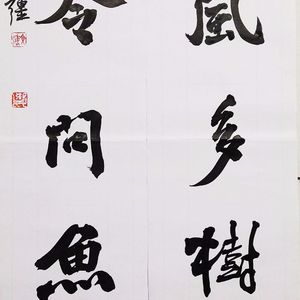 風多樹
令問魚